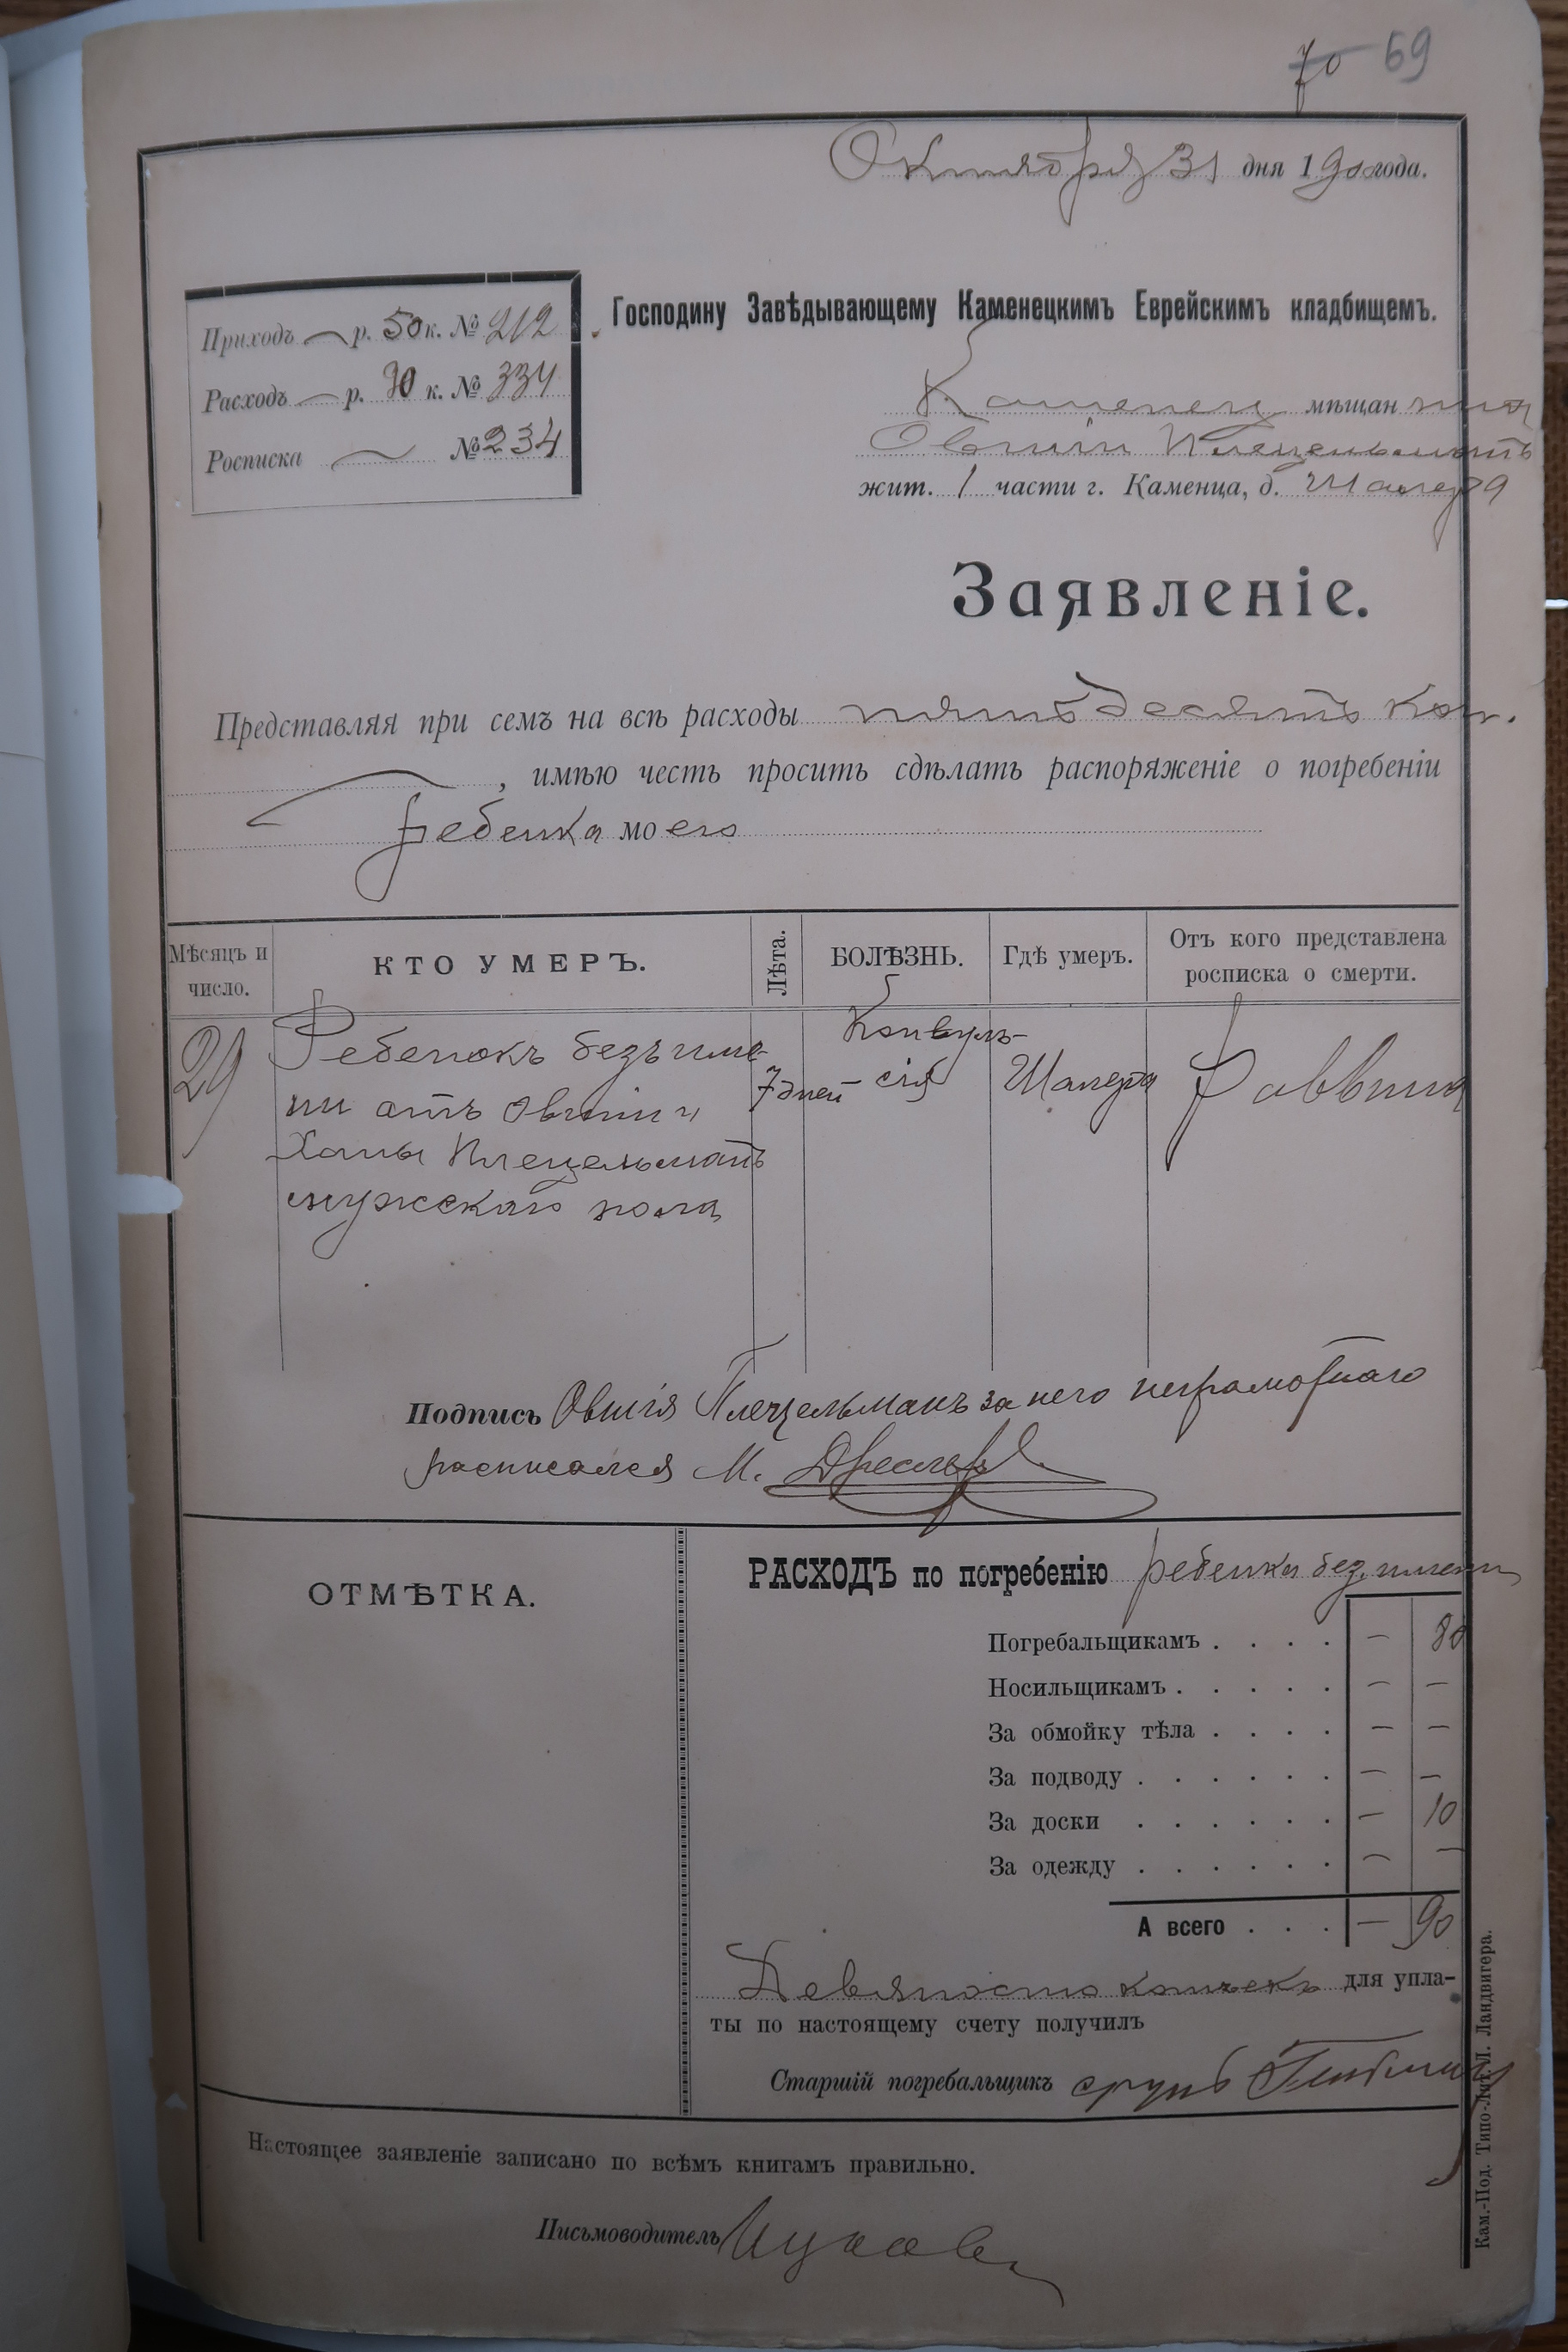 70 69
Октября 31 дня 1900 года.
Приходъ — р. 50 к. № 212
Расходъ — р. 90 к. № 334
Росписка — № 234
Господину Завѣдывающему Каменецкимъ Еврейскимъ кладбищемъ.
Каменец мѣщанина
Овшіи Плецельманъ
жит. 1 части г. Каменца, д.
Заявленіе.
Представляя при семъ на всѣ расходы пятьдесятъ коп.
, имѣю честь просить сдѣлать распоряженіе о погребеніи
ребенка моего
Мѣсяцъ и число.
КТО УМЕРЪ.
Лѣта.
БОЛѢЗНЬ.
Гдѣ умеръ.
Отъ кого представлена росписка о смерти.
29
Ребенокъ безъ име-
ни отъ Овшіи и
Ханы Плецельманъ
мужскаго пола
7 дней
Конвуль-
сія
Раввина
Подпись Овшія Плецельманъ за него неграмотнаго
расписался М. Дреслеръ
ОТМѢТКА.
РАСХОДЪ по погребенію ребенка без имени
Погребальщикамъ . . . . — 80
Носильщикамъ . . . . . — —
За обмойку тѣла . . . . — —
За подводу . . . . . . — —
За доски . . . . . . — 10
За одежду . . . . . . — —
А всего . . . — 90
Девяносто копѣекъ для упла-
ты по настоящему счету получилъ
Старшій погребальщикъ
Настоящее заявленіе записано по всѣмъ книгамъ правильно.
Письмоводитель
Кам.-Под. Типо-Лит. Л. Ландвигера.